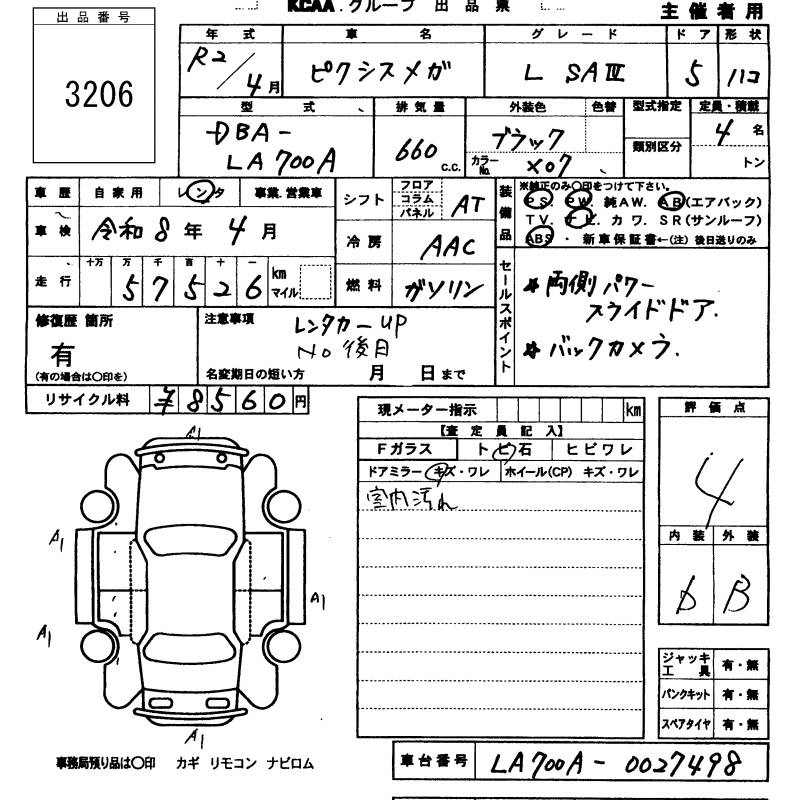 KCAA.グループ 出品票
主催者用
出品番号
3206
年式 車名 グレード ドア 形状
R2/4月 ピクシスメガ L SAⅣ 5 ハコ
型式 排気量 外装色 色替 型式指定 定員・積載
DBA-
LA700A
660 c.c.
ブラック
カラーNo. X07
類別区分
4名
トン
車歴 自家用 レンタ 事業.営業車
車検 令和8年4月
走行 十万 万 千 百 十 一
57526 km
マイル
シフト フロア コラム パネル AT
冷房 AAC
燃料 ガソリン
装備品
※純正のみ○印をつけて下さい。
PS. PW. 純AW. AB(エアバック)
TV. ナビ. カワ. SR(サンルーフ)
ABS ・ 新車保証書←(注) 後日送りのみ
セールスポイント
両側パワー
スライドドア.
バックカメラ.
修復歴 箇所
有
(有の場合は○印を)
注意事項
レンタカーUP
No後日
名変期日の短い方 月 日まで
リサイクル料 ¥8560円
現メーター指示 km
【査定員記入】
Fガラス トビ石 ヒビワレ
ドアミラー キズ・ワレ ホイール(CP) キズ・ワレ
室内汚れ
評価点
4
内装 外装
D B
ジャッキ工具 有・無
パンクキット 有・無
スペアタイヤ 有・無
A1
A1
A1
A1
A1
事務局預り品は○印 カギ リモコン ナビロム
車台番号 LA700A-0027498